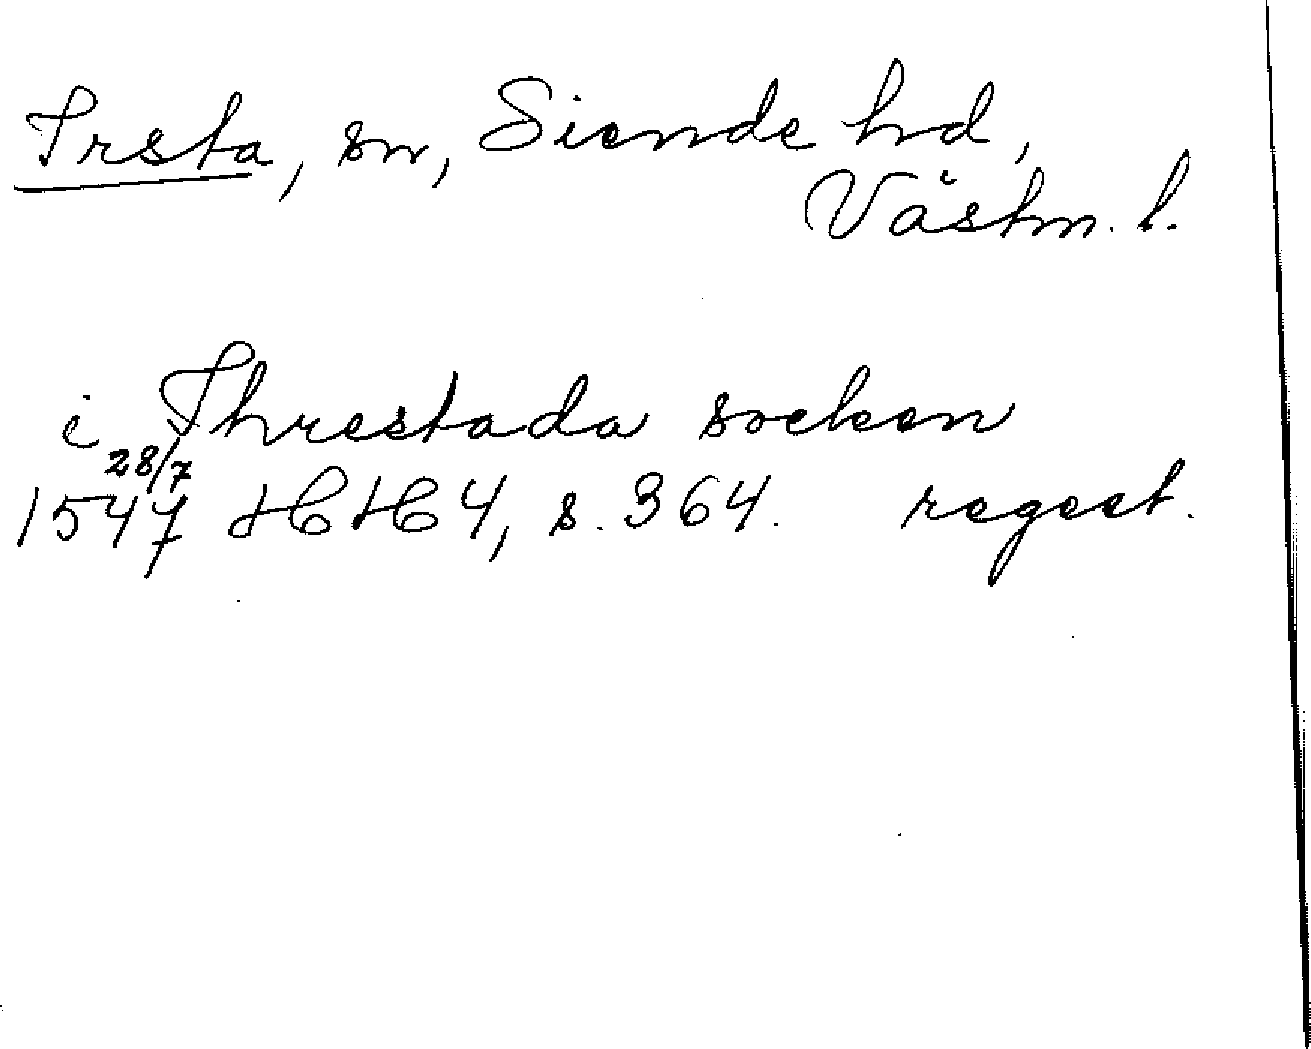 Irsta, sn, Siende hd,
Västm. l.
i Threstada socken
28/7
1547 HH 4, s. 364. regest.